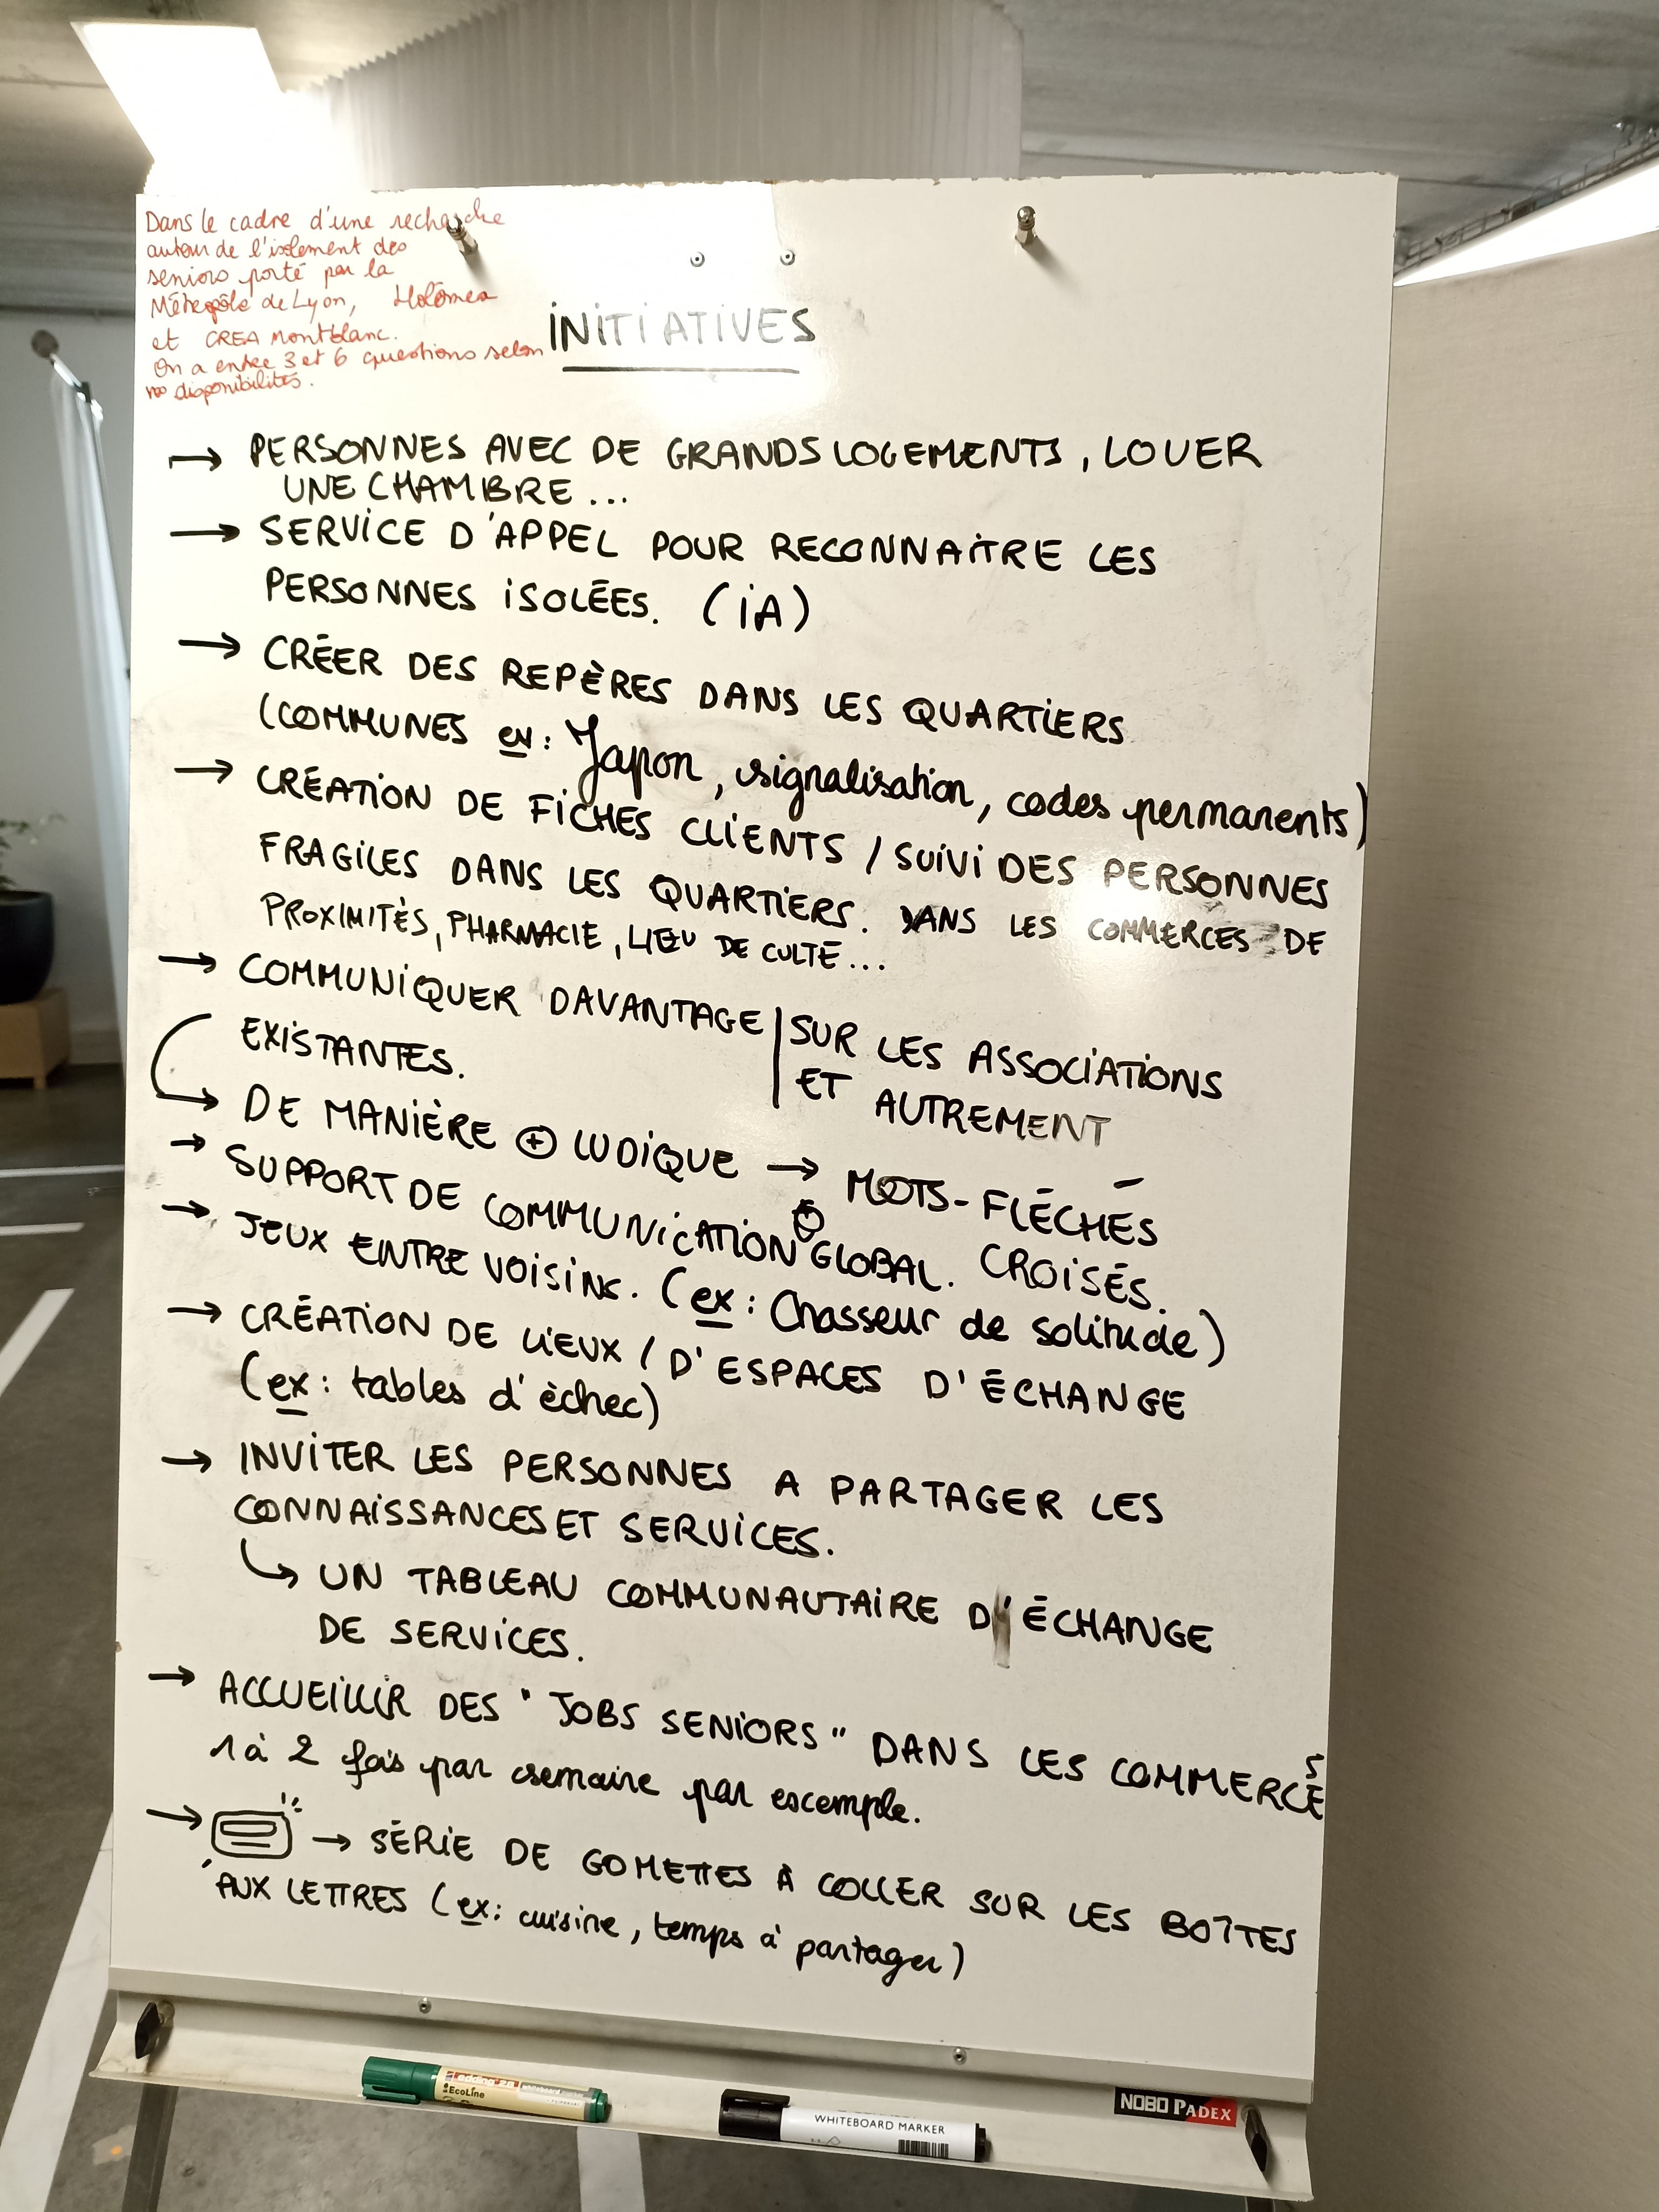 Dans le cadre d'une recherche
autour de l'isolement des
seniors porté par la
Métropôle de Lyon,
et CREA Montblanc.
On a entre 3 et 6 questions selon
nos disponibilités.
INITIATIVES
→ PERSONNES AVEC DE GRANDS LOGEMENTS, LOUER
UNE CHAMBRE...
→ SERVICE D'APPEL POUR RECONNAITRE LES
PERSONNES ISOLÉES. (IA)
→ CRÉER DES REPÈRES DANS LES QUARTIERS
(COMMUNES ex: Japon, signalisation, codes permanents)
→ CRÉATION DE FICHES CLIENTS / SUIVI DES PERSONNES
FRAGILES DANS LES QUARTIERS. DANS LES COMMERCES DE
PROXIMITÉS, PHARMACIE, LIEU DE CULTE...
→ COMMUNIQUER DAVANTAGE | SUR LES ASSOCIATIONS
EXISTANTES. | ET AUTREMENT
→ DE MANIÈRE ⊕ LUDIQUE → MOTS-FLÉCHÉS
CROISÉS.
→ SUPPORT DE COMMUNICATION GLOBAL.
→ JEUX ENTRE VOISINS. (ex: Chasseur de solitude)
→ CRÉATION DE LIEUX / D'ESPACES D'ÉCHANGE
(ex: tables d'èchec)
→ INVITER LES PERSONNES A PARTAGER LES
CONNAISSANCES ET SERVICES.
↳ UN TABLEAU COMMUNAUTAIRE D'ÉCHANGE
DE SERVICES.
→ ACCUEILLIR DES "JOBS SENIORS" DANS LES COMMERCES
1 à 2 fois par semaine par exemple.
→ → SÉRIE DE GOMETTES À COLLER SUR LES BOÎTES
AUX LETTRES (ex: cuisine, temps à partager)
edding 28
EcoLine
WHITEBOARD MARKER
NOBO PADEX